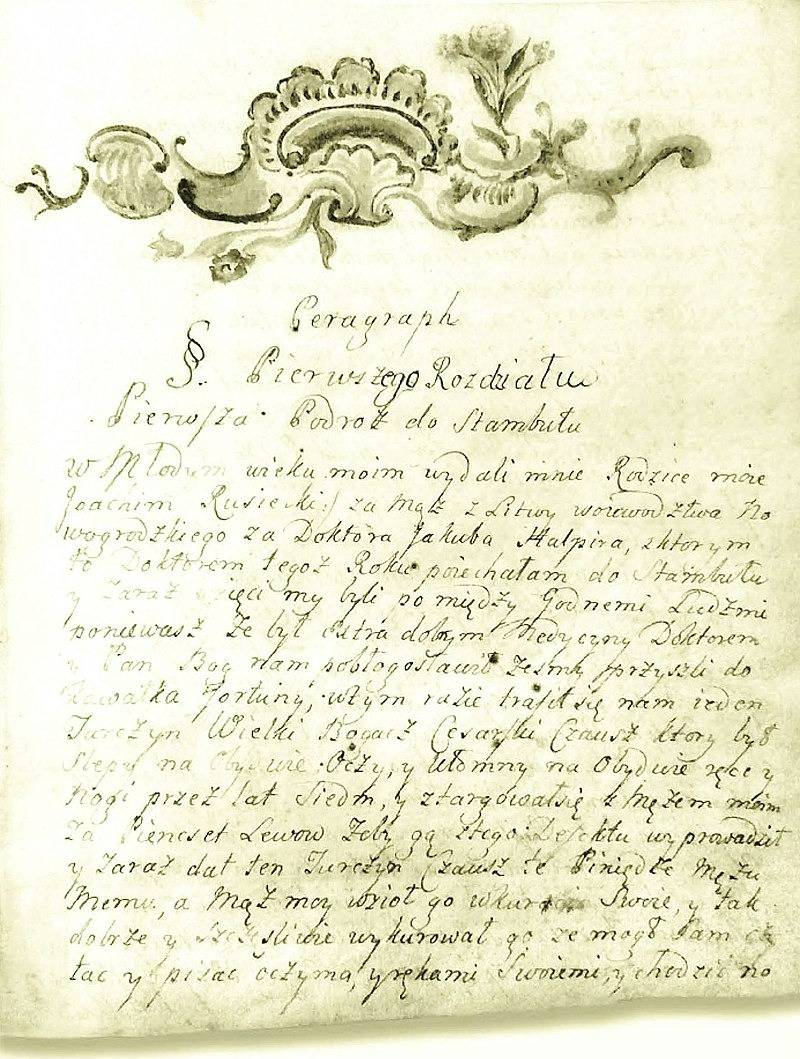 Peragraph
§. Pierwszego Rozdziału
Pierwsza Podroż do Stambułu
w Młodym wieku moim wydali mnie Rodzice moie
Joachim Rusiecki:/ za Mąż z Litwy woiewodztwa No
wogrodzkiego za Doktóra Jakuba Halpira, zktorym
to Doktorem tegoż Roku poiechałam do Stambułu
y Zaraż my byli pomiędży Godnemi Ludzmi
poniewasz że był extra dobrym Medycyny Doktorem
y Pan Bog nam pobłogosławił żesmy przyszli do
kawałka Fortuny, wtym razie trafił się nam ieden
Turczyn Wielki Bogacż Cesarski Czausz ktory był
Slepy na Obydwie Oczy, y Ułomny na Obydwie ręce y
Nogi przez lat Siedm, y ztargowałsię z Mężem moim
Za Piencset Lewow żeby gą ztego Defektu wyprowadził
y Zaraż dał ten Turczyn Czausz te Piniędże Mężu
Memu, a Mąż moy wzioł go wkuracie Swoie, y tak
dobrże y szczęsliwie wykurował go że mogł Sam czy
tac y pisac oczyma, y rękami Swoiemi, y chodzic no